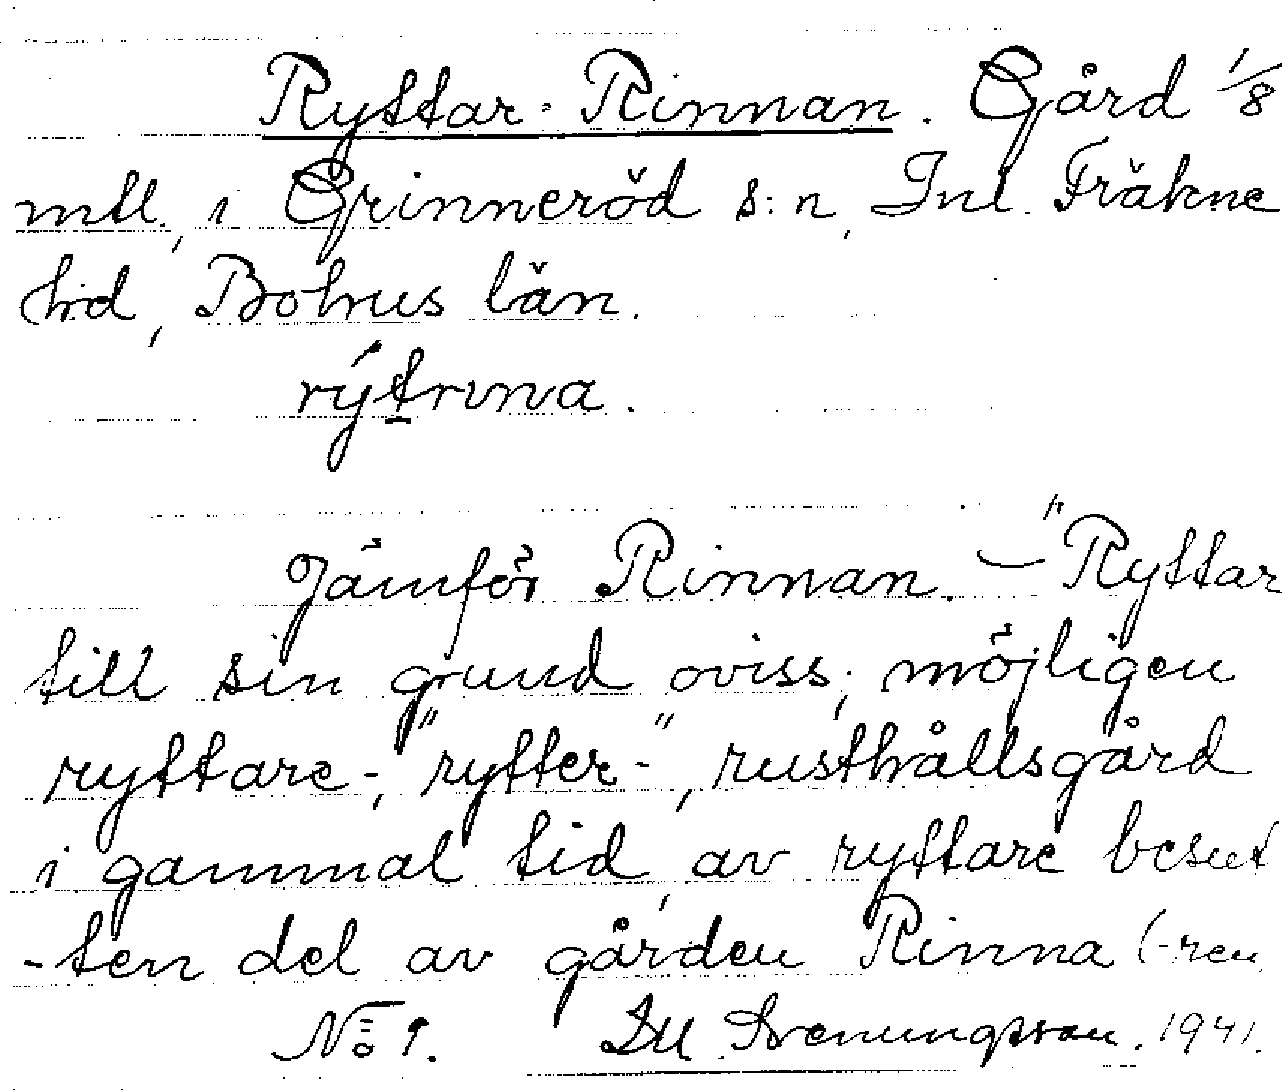 Ryttar-Rinnan. Gård 1/8
mtl., i Grinneröd s:n, Inl. Fräkne
hd, Bohus län.
rýtrına.
Jämför Rinnan. — "Ryttar
till sin grund oviss; möjligen
ryttare-, "rytter-", rusthållsgård
i gammal tid, av ryttare besut
-ten del av gården Rinna (-ren
No 9. Svenungsson. 1941.